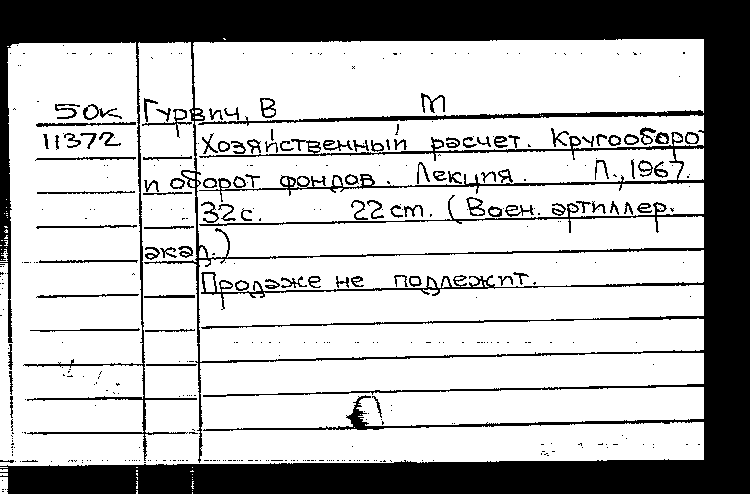 50к Гурвич, В М
11372 Хозяйственный расчет. Кругооборо
и оборот фондов. Лекция. Л., 1967.
32с. 22 ст. (Воен. артиллер.
акад.)
Продаже не подлежит.